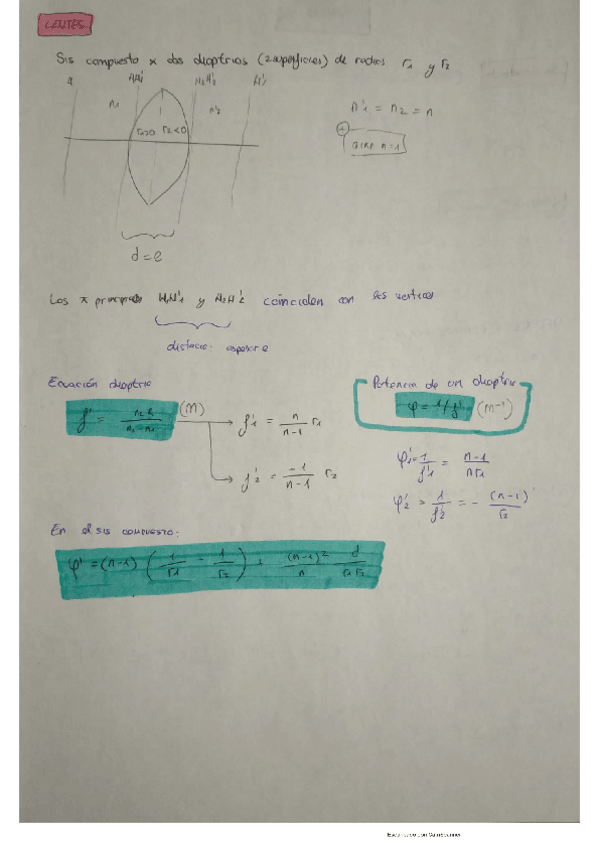 LENTES
Sis compuesto x dos dioptrios (2 superficies) de radios r1 y r2
H1H'1 H2H'2
n1 n'2
r1>0 r2<0
n'1 = n2 = n
aire n=1
d = e
Los π principales H1H'1 y H2H'2 coinciden con los vertices
distancia: espesor e
Ecuación dioptrio
Potencia de un dioptrio
(M) f'1 = n/(n-1) r1
φ = 1/f' (m⁻¹)
f'2 = -1/(n-1) r2
φ'1 = 1/f'1 = (n-1)/(n r1)
φ'2 = 1/f'2 = - (n-1)/r2
En el sis compuesto:
φ' = (n-1) (1/r1 - 1/r2) + (n-1)²/n d/(r1 r2)
Escaneado con CamScanner